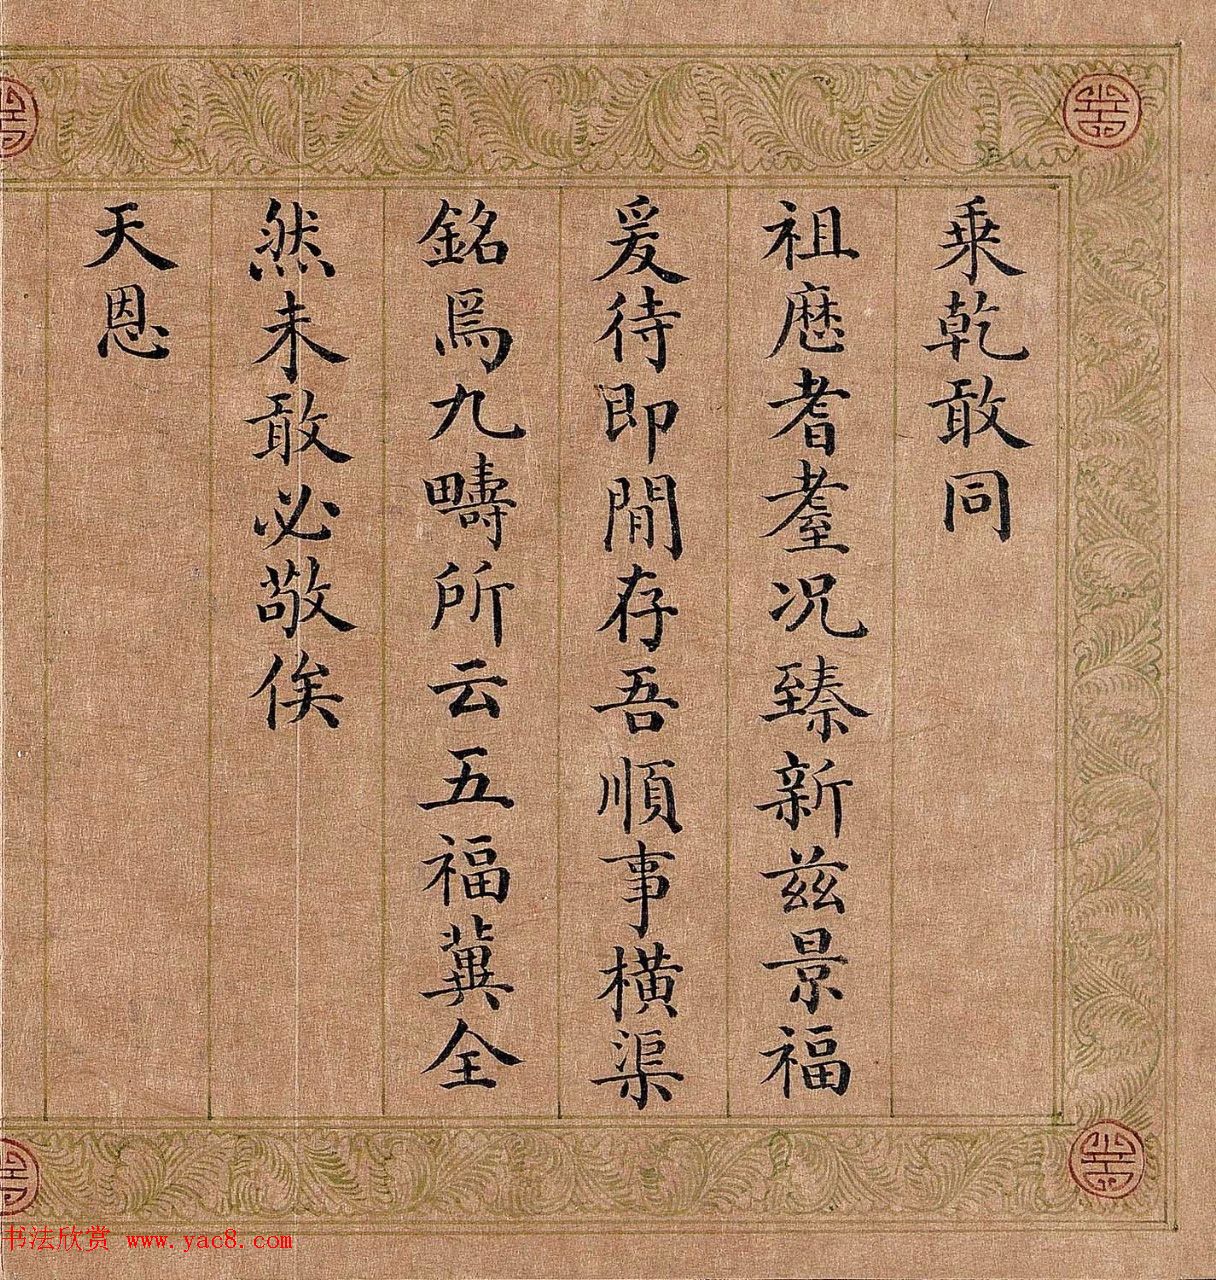 乗乾敢同
祖歴耆耋况臻新兹景福
爰待即閒存吾順事横渠
銘爲九疇所云五福冀全
然未敢必敬俟
天恩
书法欣赏 www.yac8.com